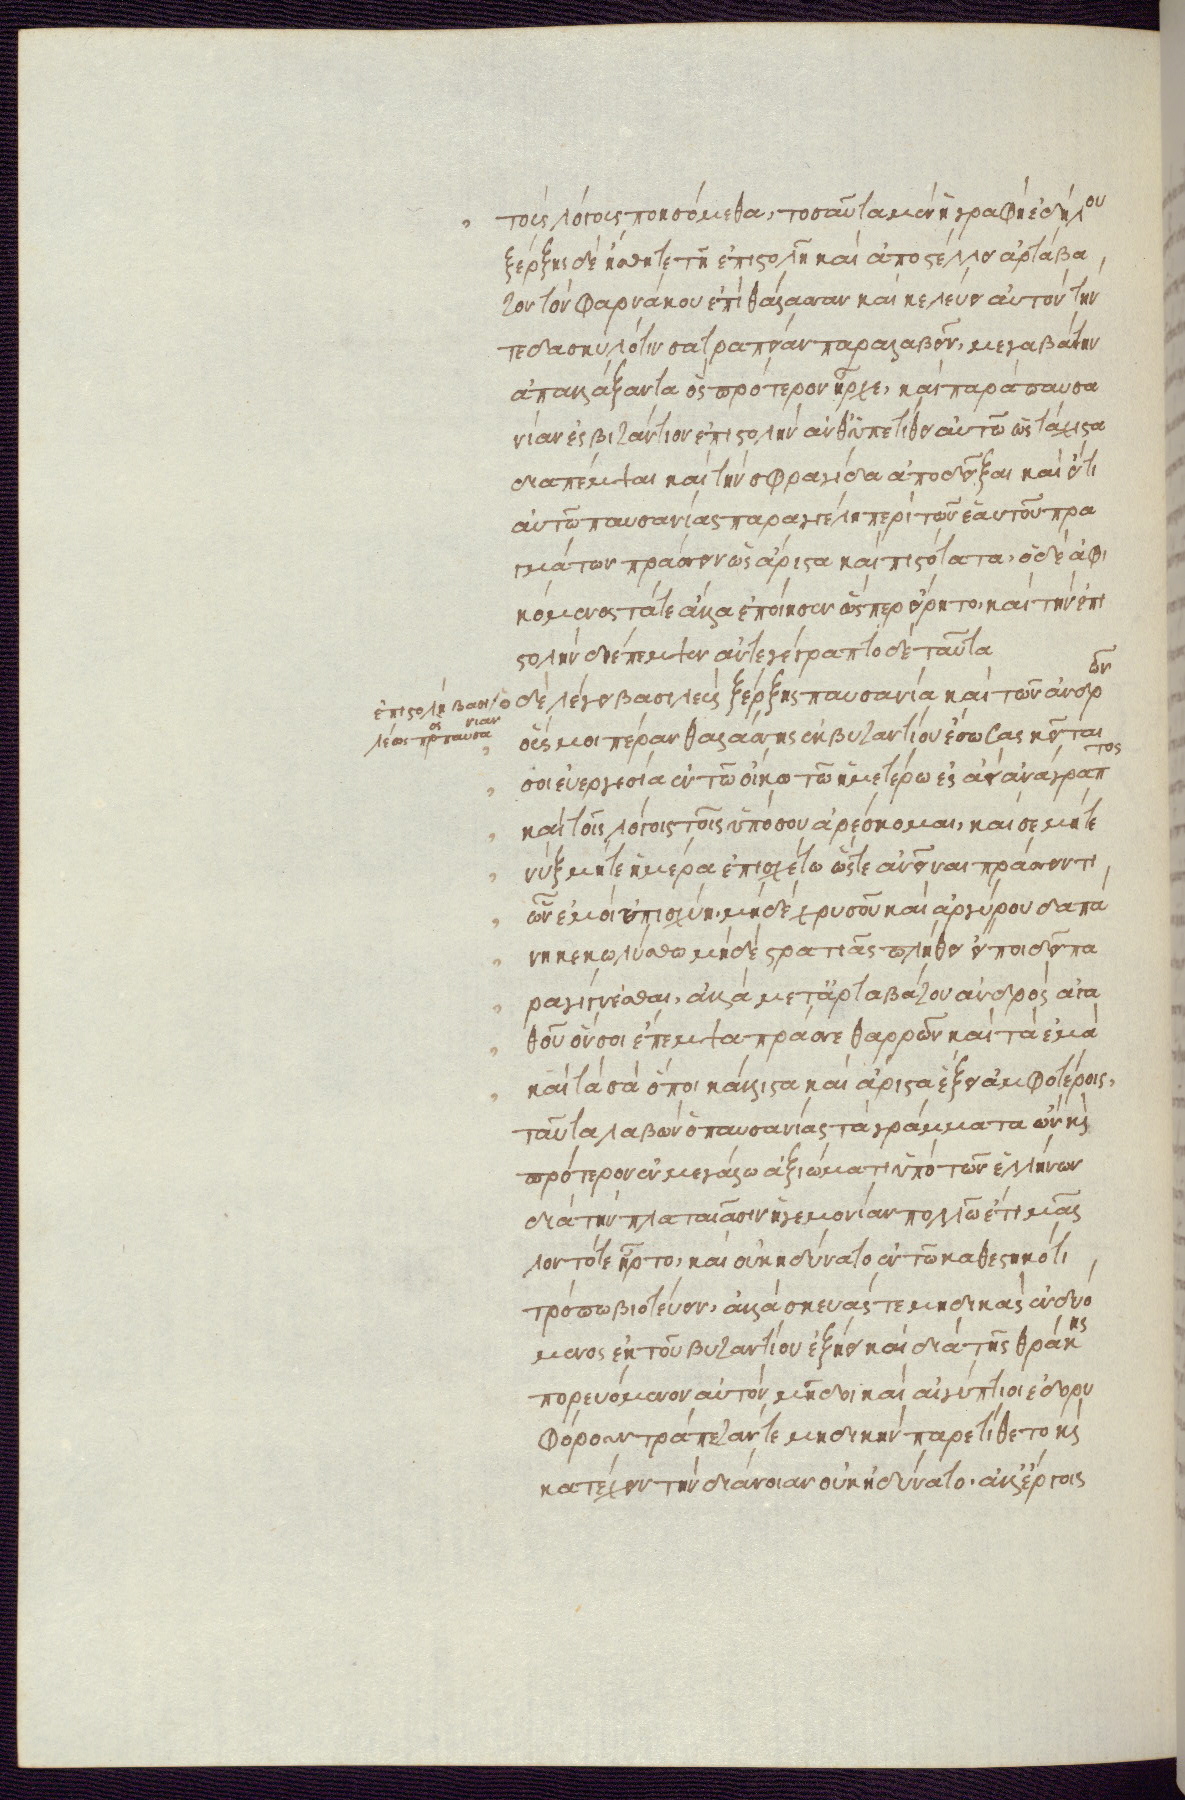 τοὺς λόγους ποιησόμεθα, τοσαῦτα μὲν ἡ γραφὴ ἐδήλου
ξέρξης δὲ ἥσθη τε τῆ ἐπιστολῆ καὶ ἀποστέλλει ἀρτάβα
ζον τὸν φαρνάκου ἐπὶ θάλασσαν καὶ κελεύει αὐτὸν τήν
τε δασκυλῖτιν σατραπείαν παραλαβεῖν, μεγαβάτην
ἀπαλλάξαντα ὃς πρότερον ἦρχε, καὶ παρὰ παυσα
νίαν ἐς βιζάντιον ἐπιστολὴν ἀνθυπετίθει αὐτῶ ὡς τάχιστα
διαπέμψαι καὶ τὴν σφραγίδα ἀποδεῖξαι καὶ ὅτι
αὐτῶ παυσανίας παραγγέλη περὶ τῶν ἑαυτοῦ πρα
γμάτων πράσσειν ὡς ἄριστα καὶ πιστότατα, ὁ δὲ ἀφι
κόμενος τά τε ἄλλα ἐποίησεν ὥσπερ εἴρητο, καὶ τὴν ἐπι
στολὴν διέπεμψεν ἀντεγέγραπτο δὲ ταῦτα
ἐπιστολὴ βασι
λέως πρὸς παυσανίαν
ὧδε λέγει βασιλεὺς ξέρξης παυσανία καὶ τῶν ἀνδρῶν
οὕς μοι πέραν θαλάσσης ἐκ βυζαντίου ἔσωσας κεῖται
σοι εὐεργεσία ἐν τῶ οἴκω τῶ ἡμετέρω ἐς ἀεὶ ἀνάγραπτος
καὶ τοῖς λόγοις τοῖς ὑπὸ σοῦ ἀρέσκομαι, καὶ σε μήτε
νὺξ μήτε ἡμέρα ἐπισχέτω ὥστε ἀνεῖναι πράσσειν τι
ὧν ἐμοὶ ὑπισχνῆ, μηδὲ χρυσοῦ καὶ ἀργύρου δαπά
νη κεκωλύσθω μηδὲ στρατιᾶς πλήθει εἴ ποι δεῖ πα
ραγίγνεσθαι, ἀλλὰ μετ' ἀρταβάζου ἀνδρὸς ἀγα
θοῦ ὅν σοι ἔπεμψα πρᾶσσε θαρρῶν καὶ τὰ ἐμὰ
καὶ τὰ σὰ ὅποι κάλλιστα καὶ ἄριστα ἕξει ἀμφοτέροις,
ταῦτα λαβὼν ὁ παυσανίας τὰ γράμματα ὢν καὶ
πρότερον ἐν μεγάλω ἀξιώματι ὑπὸ τῶν ἑλλήνων
διὰ τὴν πλαταιᾶσιν ἡγεμονίαν πολλῶ ἔτι μᾶλ
λον τότε ἦρτο, καὶ οὐκ ἠδύνατο ἐν τῶ καθεστηκότι
τρόπω βιοτεύειν, ἀλλὰ σκευάς τε μηδικὰς ἐνδυό
μενος ἐκ τοῦ βυζαντίου ἐξήει καὶ διὰ τῆς θράκης
πορευόμενον αὐτὸν μῆδοι καὶ αἰγύπτιοι ἐδορυ
φόρουν τράπεζάν τε μηδικὴν παρετίθετο καὶ
κατέχειν τὴν διάνοιαν οὐκ ἠδύνατο, ἀλλ' ἔργοις